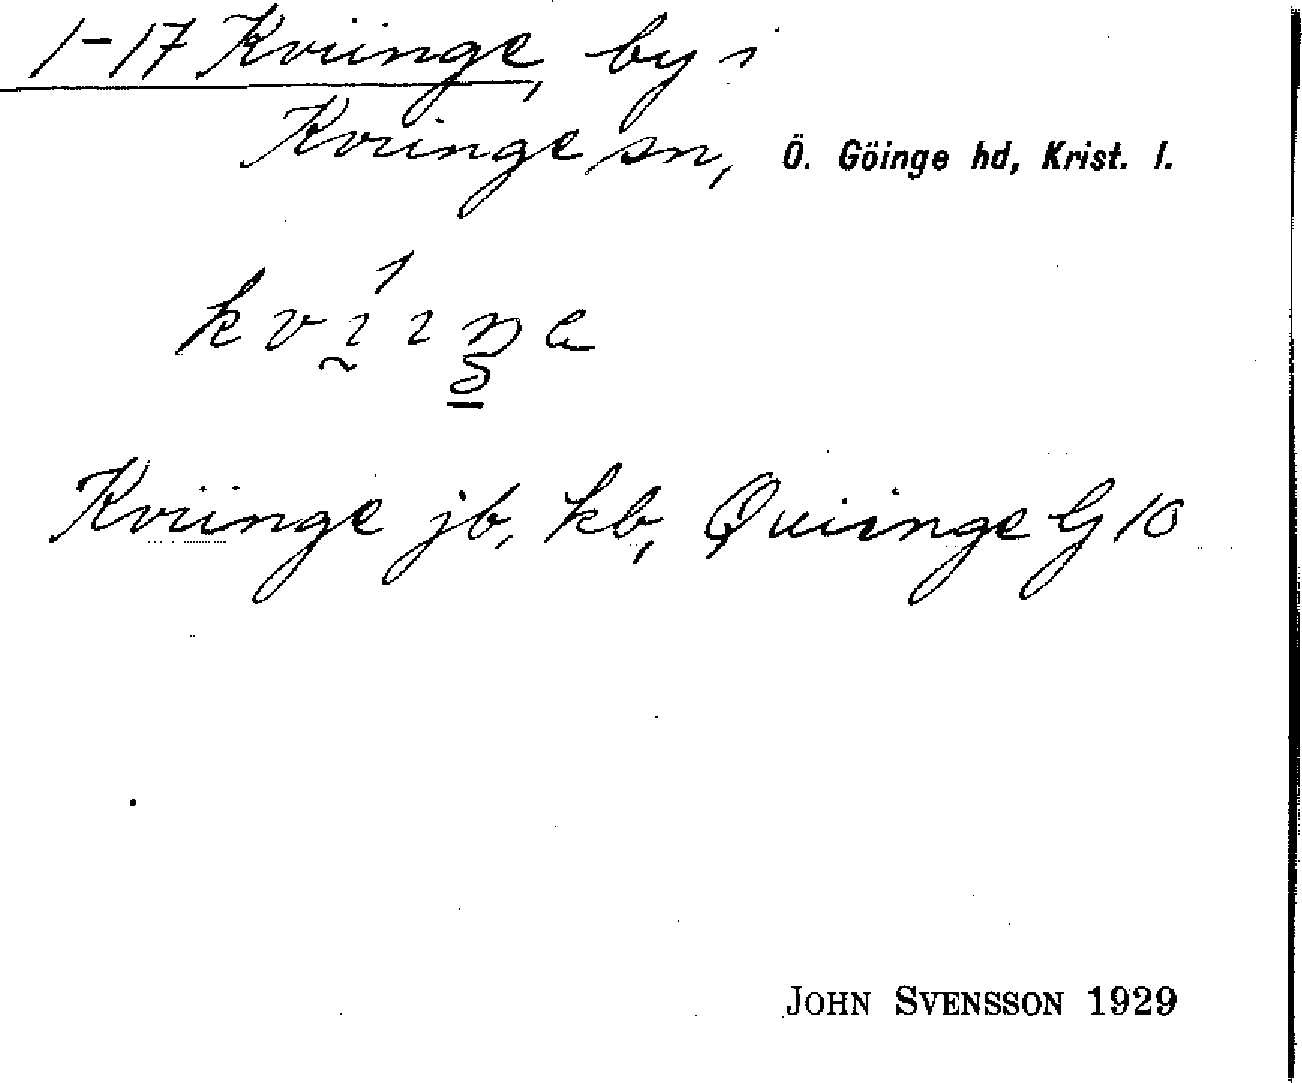 1-17 Kviinge, by i
Kviinge sn, Ö. Göinge hd, Krist. l.
Kviinge jb, kb, Quiinge G 10
JOHN SVENSSON 1929